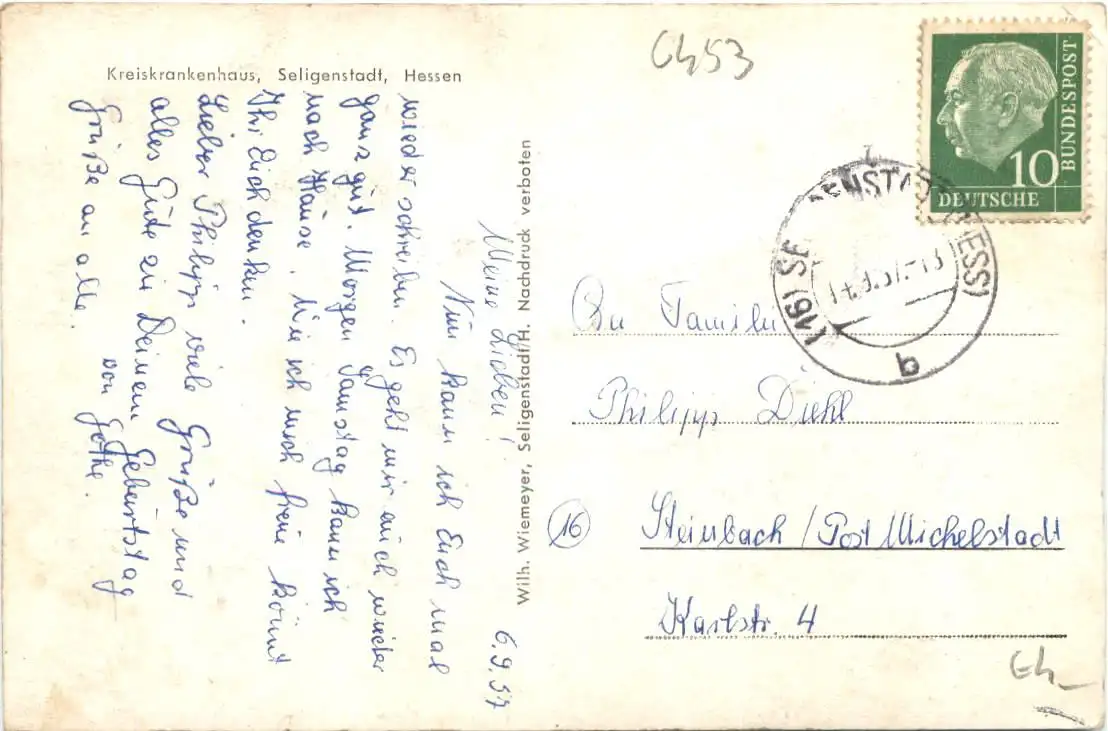 Kreiskrankenhaus, Seligenstadt, Hessen
6453
BUNDESPOST
10
DEUTSCHE
6.9.57
Meine Lieben!
Nun kann ich Euch mal
wieder schreiben. Es geht mir auch wieder
ganz gut. Morgen Samstag kann ich
nach Hause. Wie ich mich freue könnt
Ihr Euch denken.
Lieber Philipp viele Grüße und
alles Gute zu Deinem Geburtstag
von
Grüße an alle.
Wilh. Wiemeyer, Seligenstadt/H. Nachdruck verboten
(16) SE ENSTADT (HESS)
b
An Familie
Philipp Diehl
16 Steinbach / Post Michelstadt
Karlstr. 4